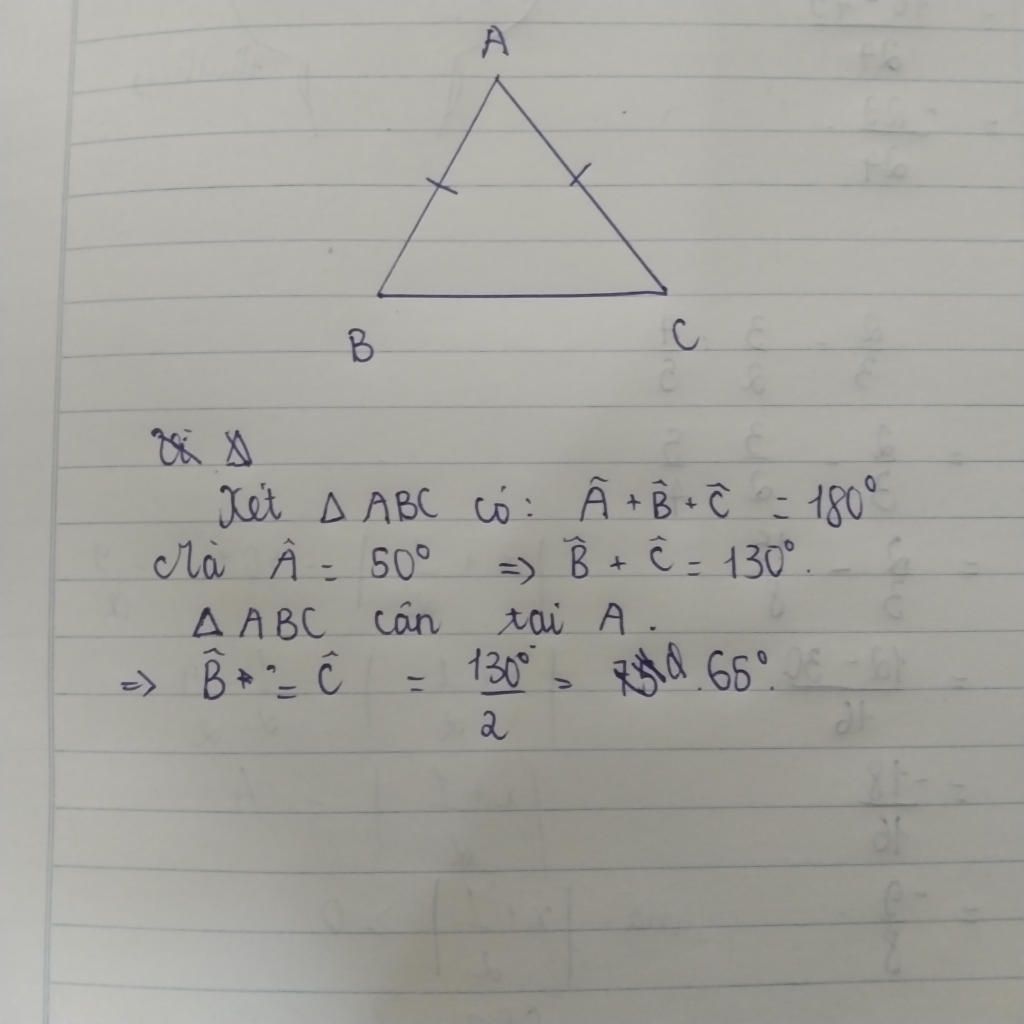 A
B C
Xét Δ ABC có: Â + B̂ + Ĉ = 180°
Mà Â = 50° => B̂ + Ĉ = 130°.
Δ ABC cân tai A.
=> B̂ = Ĉ = 130°/2 = 65°.